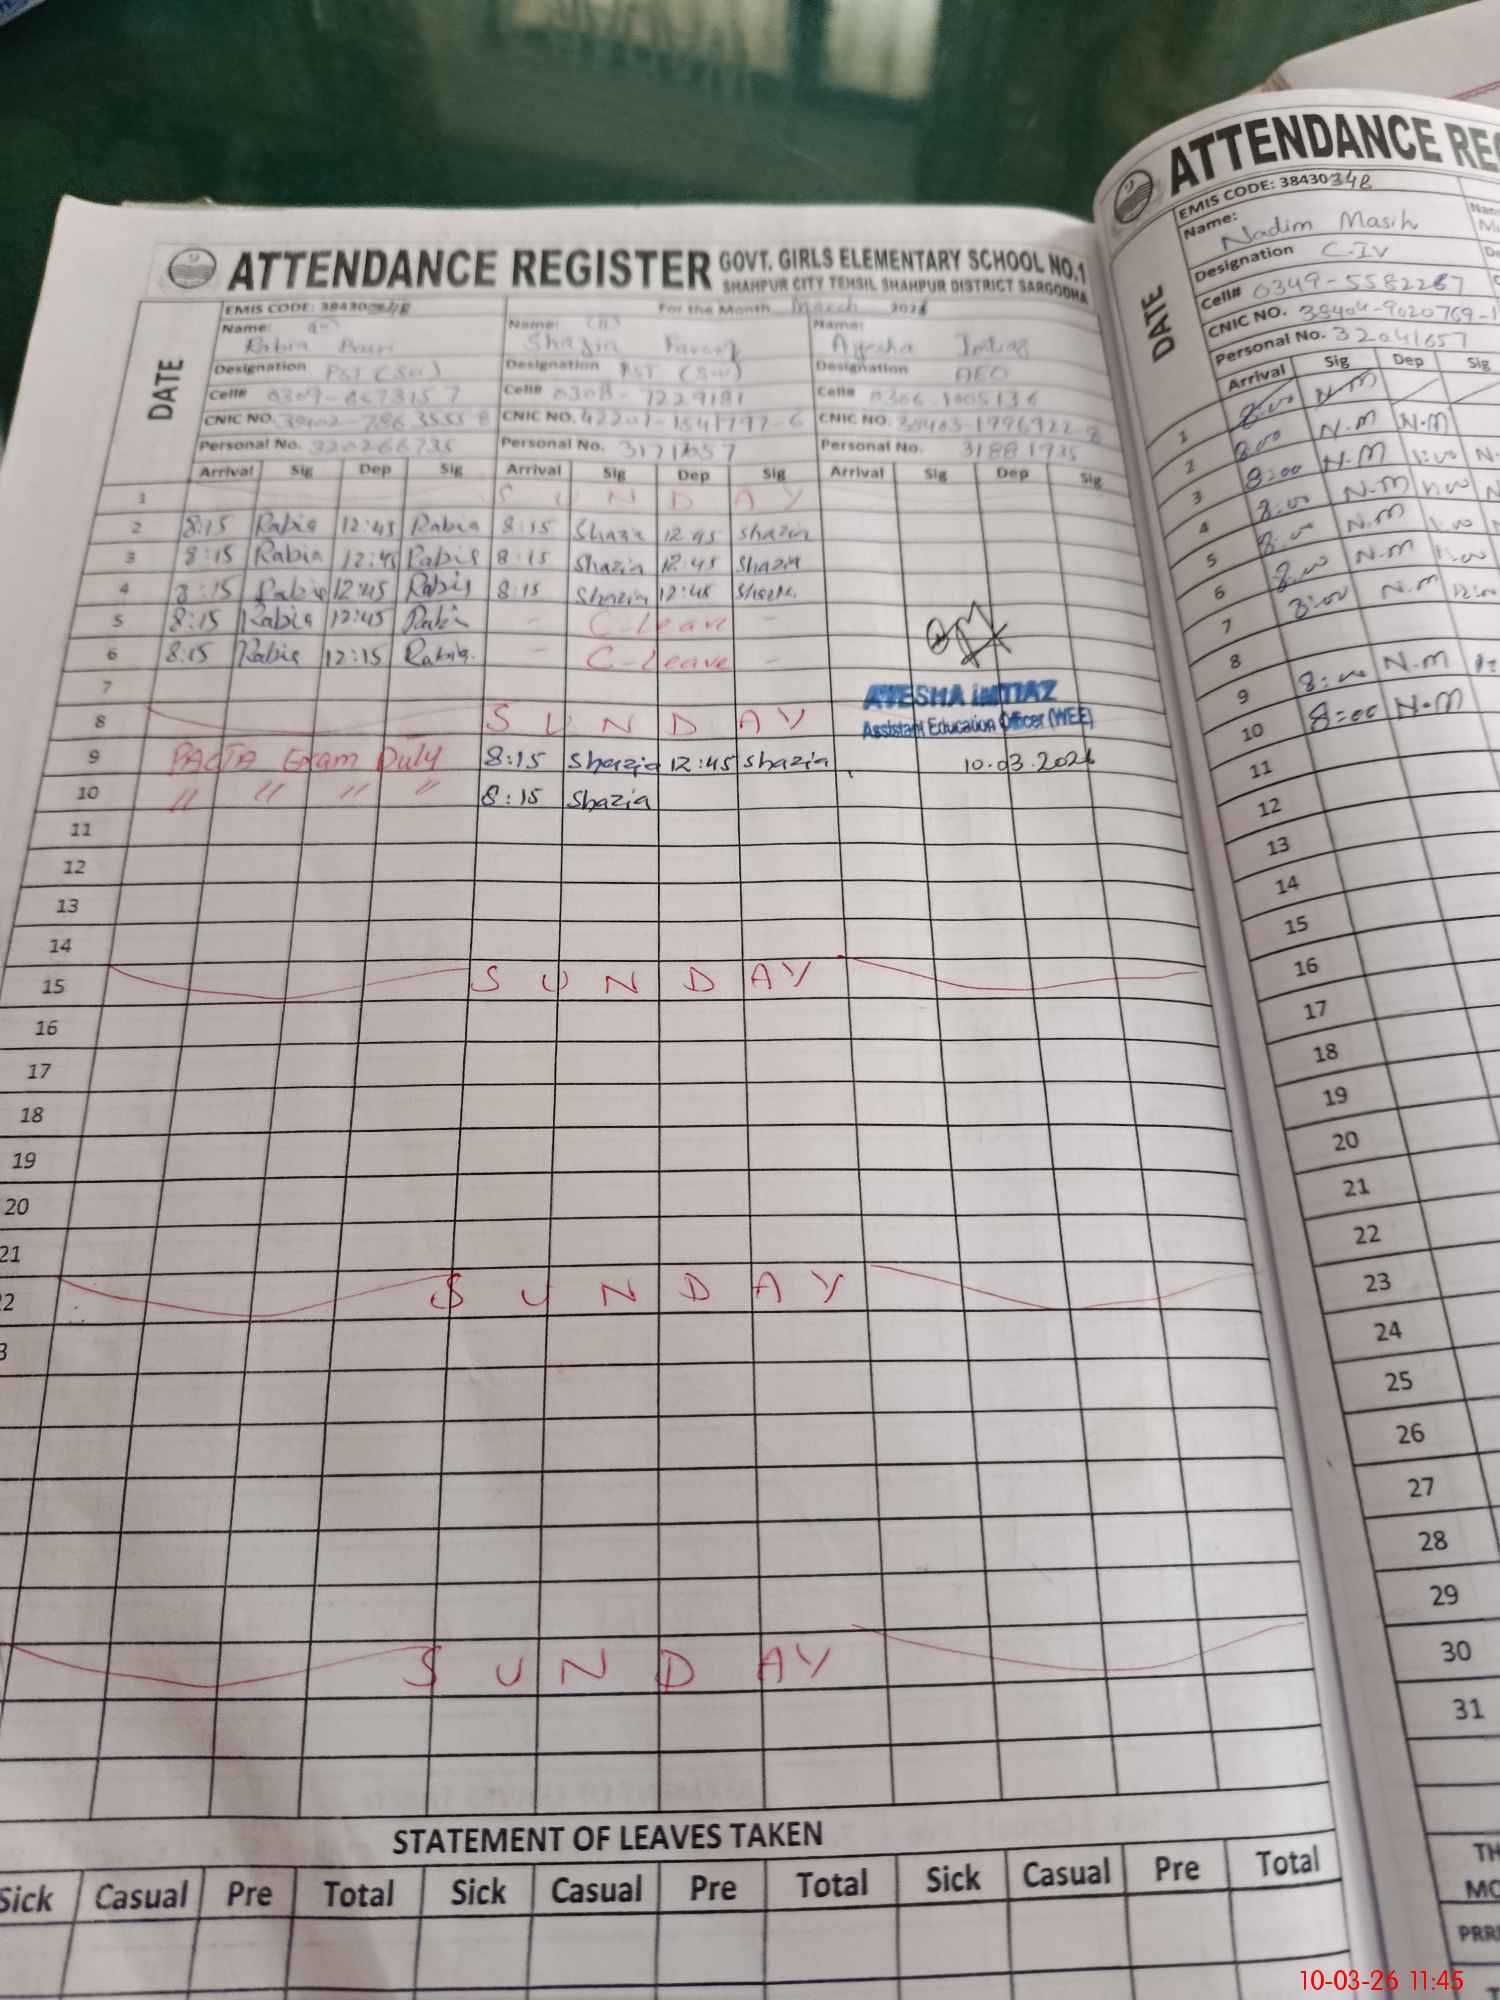 ATTENDANCE REGISTER GOVT. GIRLS ELEMENTARY SCHOOL NO.1
SHAHPUR CITY TEHSIL SHAHPUR DISTRICT SARGODHA
DATE
EMIS CODE: 38430348 For the Month March
Name: Rabia Name: Shazia Name: Ayesha Imtiaz
Designation PST Designation PST Designation AEO
Cell# Cell# 0308-7229181 Cell#
CNIC NO. CNIC NO. CNIC NO.
Personal No. Personal No. Personal No.
Arrival Sig Dep Sig Arrival Sig Dep Sig Arrival Sig Dep Sig
1 SUNDAY
2 8:15 Rabia 12:45 Rabia 8:15 Shazia 12:45 Shazia
3 8:15 Rabia 12:45 Rabia 8:15 Shazia 12:45 Shazia
4 8:15 Rabia 12:45 Rabia 8:15 Shazia 12:45 Shazia
5 8:15 Rabia 12:45 Rabia - C-Leave -
6 8:15 Rabia 12:15 Rabia - C-Leave -
7
AYESHA IMTIAZ
8 SUNDAY
Assistant Education Officer (WEE)
9 Exam Duty 8:15 Shazia 12:45 Shazia
10.03.2026
10 " " " " 8:15 Shazia
11
12
13
14
15 SUNDAY
16
17
18
19
20
21
22 SUNDAY
3
SUNDAY
STATEMENT OF LEAVES TAKEN
Sick Casual Pre Total Sick Casual Pre Total Sick Casual Pre Total
ATTENDANCE REG
EMIS CODE: 38430348
DATE
Name: Nadim Masih
Designation C-IV
Cell# 0349-5582267
CNIC NO. 38404-9020769-1
Personal No. 32041657
Arrival Sig Dep Sig
1 8:00 N-M
2 8:00 N-M N-M
3 8:00 N-M 1:00 N-
4 8:00 N-M 1:00
5 8:00 N-M 1:00
6 8:00 N-M 1:00
7 8:00 N-M 12:00
8
9 8:00 N-M
10 8:00 N-M
11
12
13
14
15
16
17
18
19
20
21
22
23
24
25
26
27
28
29
30
31
TH
MO
PRR
10-03-26 11:45